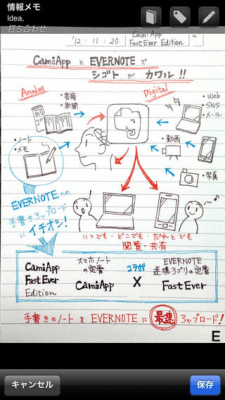 情報メモ
Idea,
打ち合わせ
'12・11・20
CamiApp
FastEver Edition
CamiApp と EVERNOTE で
シゴト が カワル!!
Analog
Digital
・書籍
・新聞
・Web
・SNS
・メール
・ノート
・メモ
・動画
・写真
EVERNOTEへの
手書きアップロード
イチオシ!
いつでも・どこでも・だれとでも
閲覧・共有
CamiApp
FastEver
Edition
スマホノート
の定番
CamiApp
コラボ
×
EVERNOTE
連携アプリの定番
FastEver
手書きのノートを EVERNOTE に 最速 アップロード!
E
キャンセル
保存